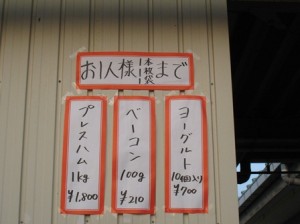 お1人様1本1枚1袋まで
ヨーグルト
10個入り
¥700
ベーコン
100g
¥210
プレスハム
1kg
¥1,800